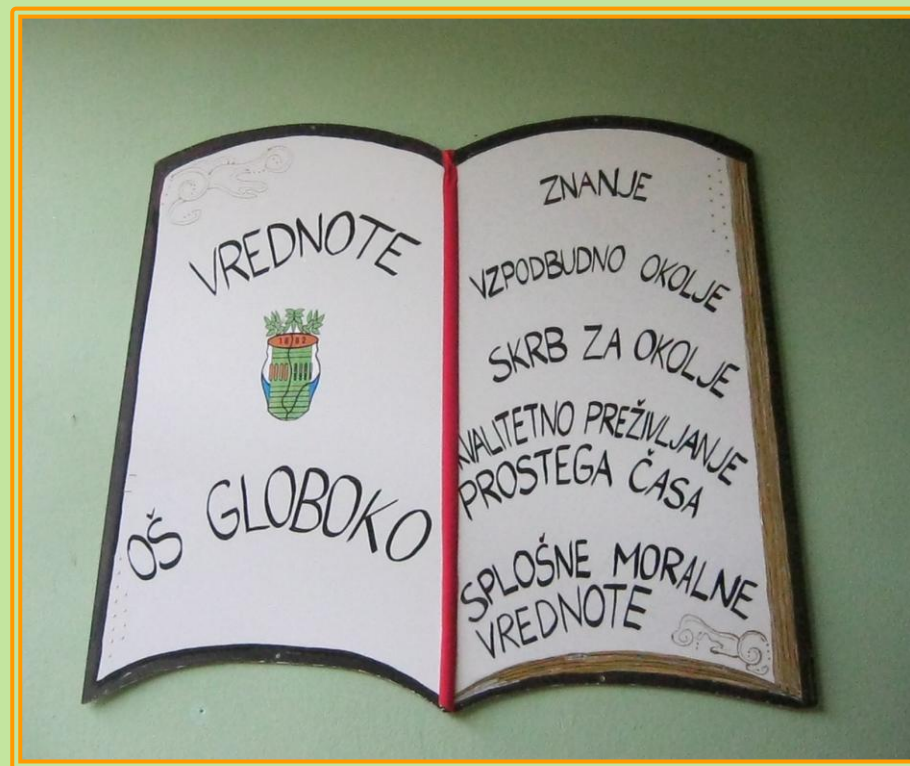 VREDNOTE
1882
OŠ GLOBOKO
ZNANJE
VZPODBUDNO OKOLJE
SKRB ZA OKOLJE
KVALITETNO PREŽIVLJANJE
PROSTEGA ČASA
SPLOŠNE MORALNE
VREDNOTE